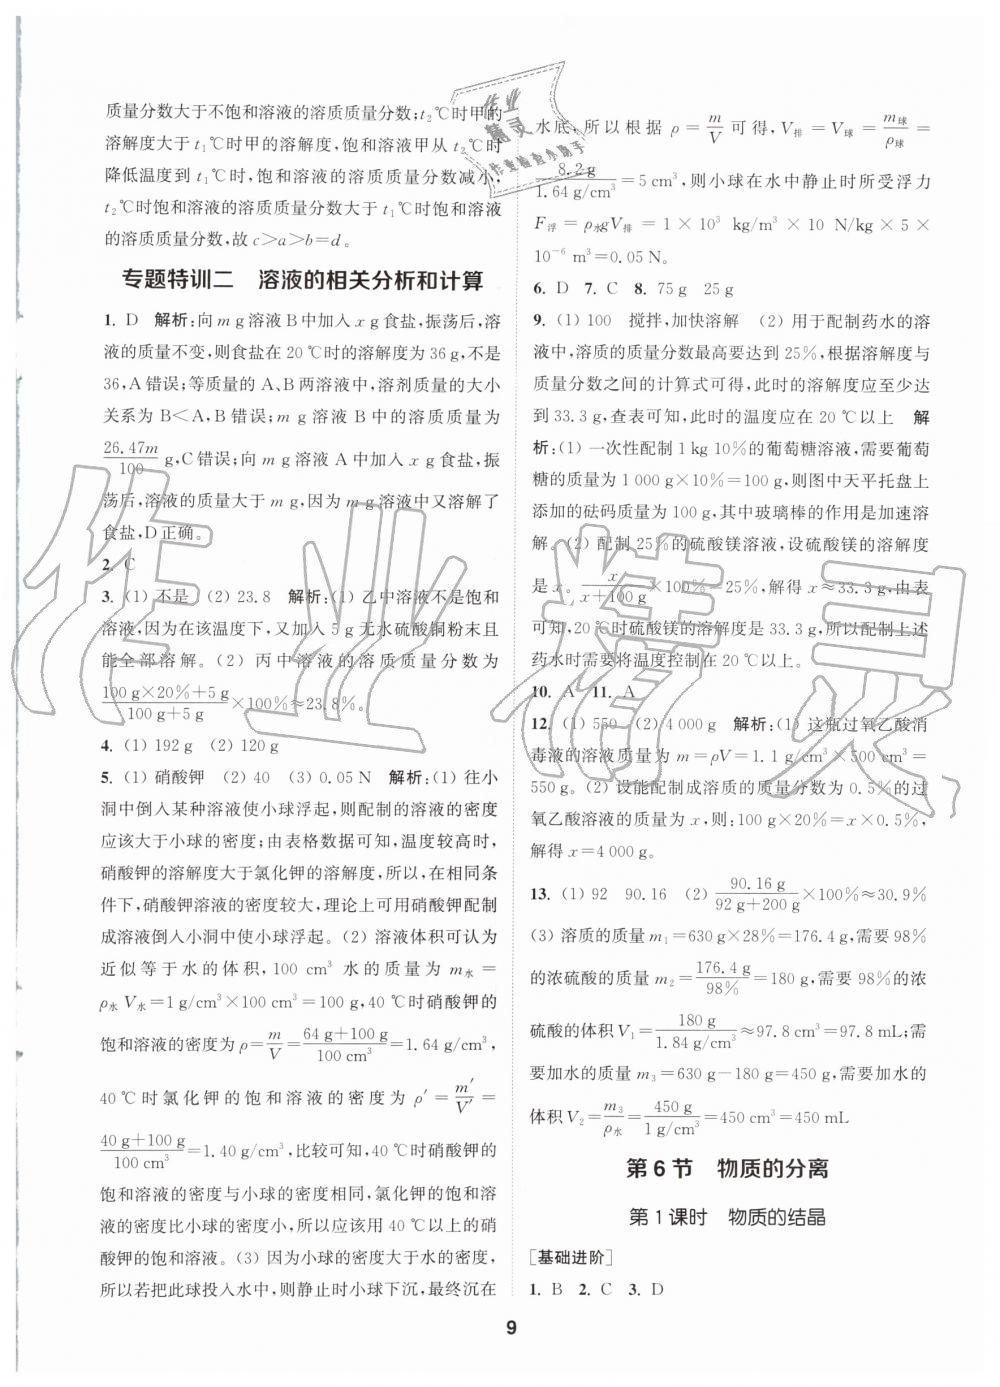 质量分数大于不饱和溶液的溶质质量分数;t₂℃时甲的
溶解度大于t₁℃时甲的溶解度,饱和溶液甲从t₂℃时
降低温度到t₁℃时,饱和溶液的溶质质量分数减小,
t₂℃时饱和溶液的溶质质量分数大于t₁℃时饱和溶液
的溶质质量分数,故c>a>b=d。
专题特训二 溶液的相关分析和计算
1. D 解析:向m g溶液B中加入x g食盐,振荡后,溶
液的质量不变,则食盐在20℃时的溶解度为36 g,不是
36,A错误;等质量的A、B两溶液中,溶剂质量的大小
关系为B<A,B错误;m g溶液B中的溶质质量为
26.47m/100 g,C错误;向m g溶液A中加入x g食盐,振
荡后,溶液的质量大于m g,因为m g溶液中又溶解了
食盐,D正确。
2. C
3. (1) 不是 (2) 23.8 解析:(1) 乙中溶液不是饱和
溶液,因为在该温度下,又加入5 g无水硫酸铜粉末且
能全部溶解。(2) 丙中溶液的溶质质量分数为
(100 g×20%+5 g)/(100 g+5 g)×100%≈23.8%。
4. (1) 192 g (2) 120 g
5. (1) 硝酸钾 (2) 40 (3) 0.05 N 解析:(1) 往小
洞中倒入某种溶液使小球浮起,则配制的溶液的密度
应该大于小球的密度;由表格数据可知,温度较高时,
硝酸钾的溶解度大于氯化钾的溶解度,所以,在相同条
件下,硝酸钾溶液的密度较大,理论上可用硝酸钾配制
成溶液倒入小洞中使小球浮起。(2) 溶液体积可认为
近似等于水的体积,100 cm³水的质量为m水=
ρ水V水=1 g/cm³×100 cm³=100 g,40℃时硝酸钾的
饱和溶液的密度为ρ=m/V=(64 g+100 g)/(100 cm³)=1.64 g/cm³,
40℃时氯化钾的饱和溶液的密度为ρ′=m′/V′=
(40 g+100 g)/(100 cm³)=1.40 g/cm³,比较可知,40℃时硝酸钾的
饱和溶液的密度与小球的密度相同,氯化钾的饱和溶
液的密度比小球的密度小,所以应该用40℃以上的硝
酸钾的饱和溶液。(3) 因为小球的密度大于水的密度,
所以若把此球投入水中,则静止时小球下沉,最终沉在
水底,所以根据ρ=m/V可得,V排=V球=m球/ρ球=
8.2 g/(1.64 g/cm³)=5 cm³,则小球在水中静止时所受浮力
F浮=ρ水gV排=1×10³ kg/m³×10 N/kg×5×
10⁻⁶ m³=0.05 N。
6. D 7. C 8. 75 g 25 g
9. (1) 100 搅拌,加快溶解 (2) 用于配制药水的溶
液中,溶质的质量分数最高要达到25%,根据溶解度与
质量分数之间的计算式可得,此时的溶解度应至少达
到33.3 g,查表可知,此时的温度应在20℃以上 解
析:(1) 一次性配制1 kg 10%的葡萄糖溶液,需要葡萄
糖的质量为1 000 g×10%=100 g,则图中天平托盘上
添加的砝码质量为100 g,其中玻璃棒的作用是加速溶
解。(2) 配制25%的硫酸镁溶液,设硫酸镁的溶解度
是x。x/(x+100 g)×100%=25%,解得x≈33.3 g,由表
可知,20℃时硫酸镁的溶解度是33.3 g,所以配制上述
药水时需要将温度控制在20℃以上。
10. A 11. A
12. (1) 550 (2) 4 000 g 解析:(1) 这瓶过氧乙酸消
毒液的溶液质量为m=ρV=1.1 g/cm³×500 cm³=
550 g。(2) 设能配制成溶质的质量分数为0.5%的过
氧乙酸溶液的质量为x,则:100 g×20%=x×0.5%,
解得x=4 000 g。
13. (1) 92 90.16 (2) 90.16 g/(92 g+200 g)×100%≈30.9%
(3) 溶质的质量m₁=630 g×28%=176.4 g,需要98%
的浓硫酸的质量m₂=176.4 g/98%=180 g,需要98%的浓
硫酸的体积V₁=180 g/(1.84 g/cm³)≈97.8 cm³=97.8 mL;需
要加水的质量m₃=630 g-180 g=450 g,需要加水的
体积V₂=m₃/ρ水=450 g/(1 g/cm³)=450 cm³=450 mL
第6节 物质的分离
第1课时 物质的结晶
[基础进阶]
1. B 2. C 3. D
9
作业
精灵
作业检查小助手
作业精灵